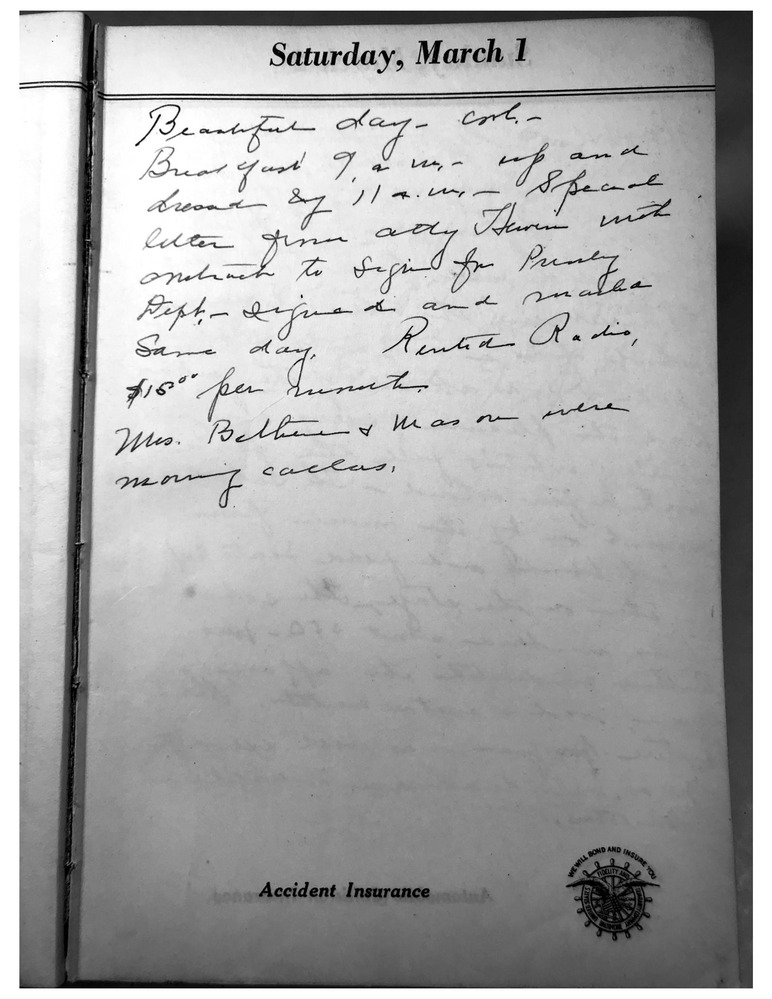 Saturday, March 1
Beautiful day - cool. -
Breakfast 9 a.m. - up and
dressed by 11 a.m. - Special
letter from atty with
contract to sign for
Dept. - signed and mailed
same day. Rented Radio,
$15.00 per month.
Mrs. Bethune & Mason were
morning callers.
Accident Insurance
WE WILL BOND AND INSURE YOU
FIDELITY AND